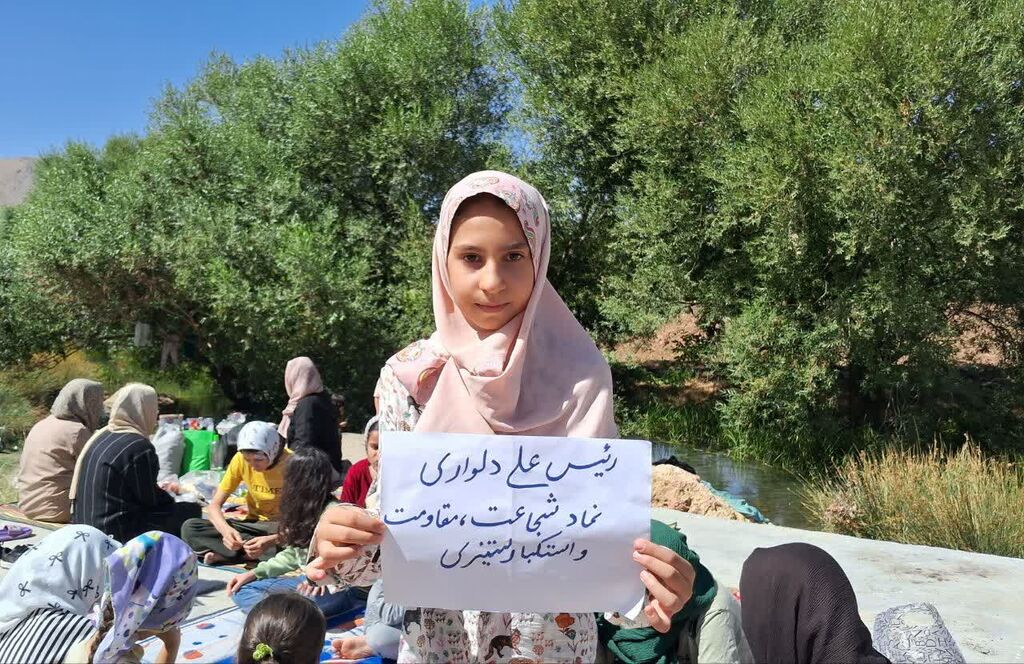 رئیس علی دلواری
نماد شجاعت، مقاومت
و استکبارستیزی
TIME